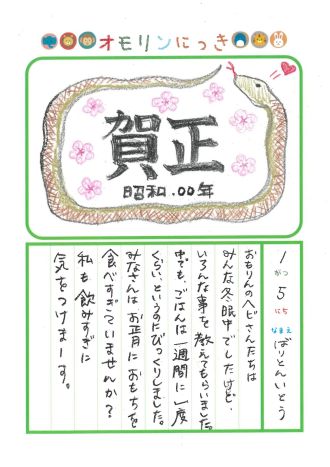 オモリンにっき
賀正
昭和.00年
1がつ5にち なまえ ばりとんいとう
おもりんのヘビさんたちは
みんな冬眠中でしたけど、
いろんな事を教えてもらいました。
中でも、ごはんは一週間に一度
くらい、というのにびっくりしました。
みなさんはお正月におもちを
食べすぎていませんか？
私も飲みすぎに
気をつけまーす。